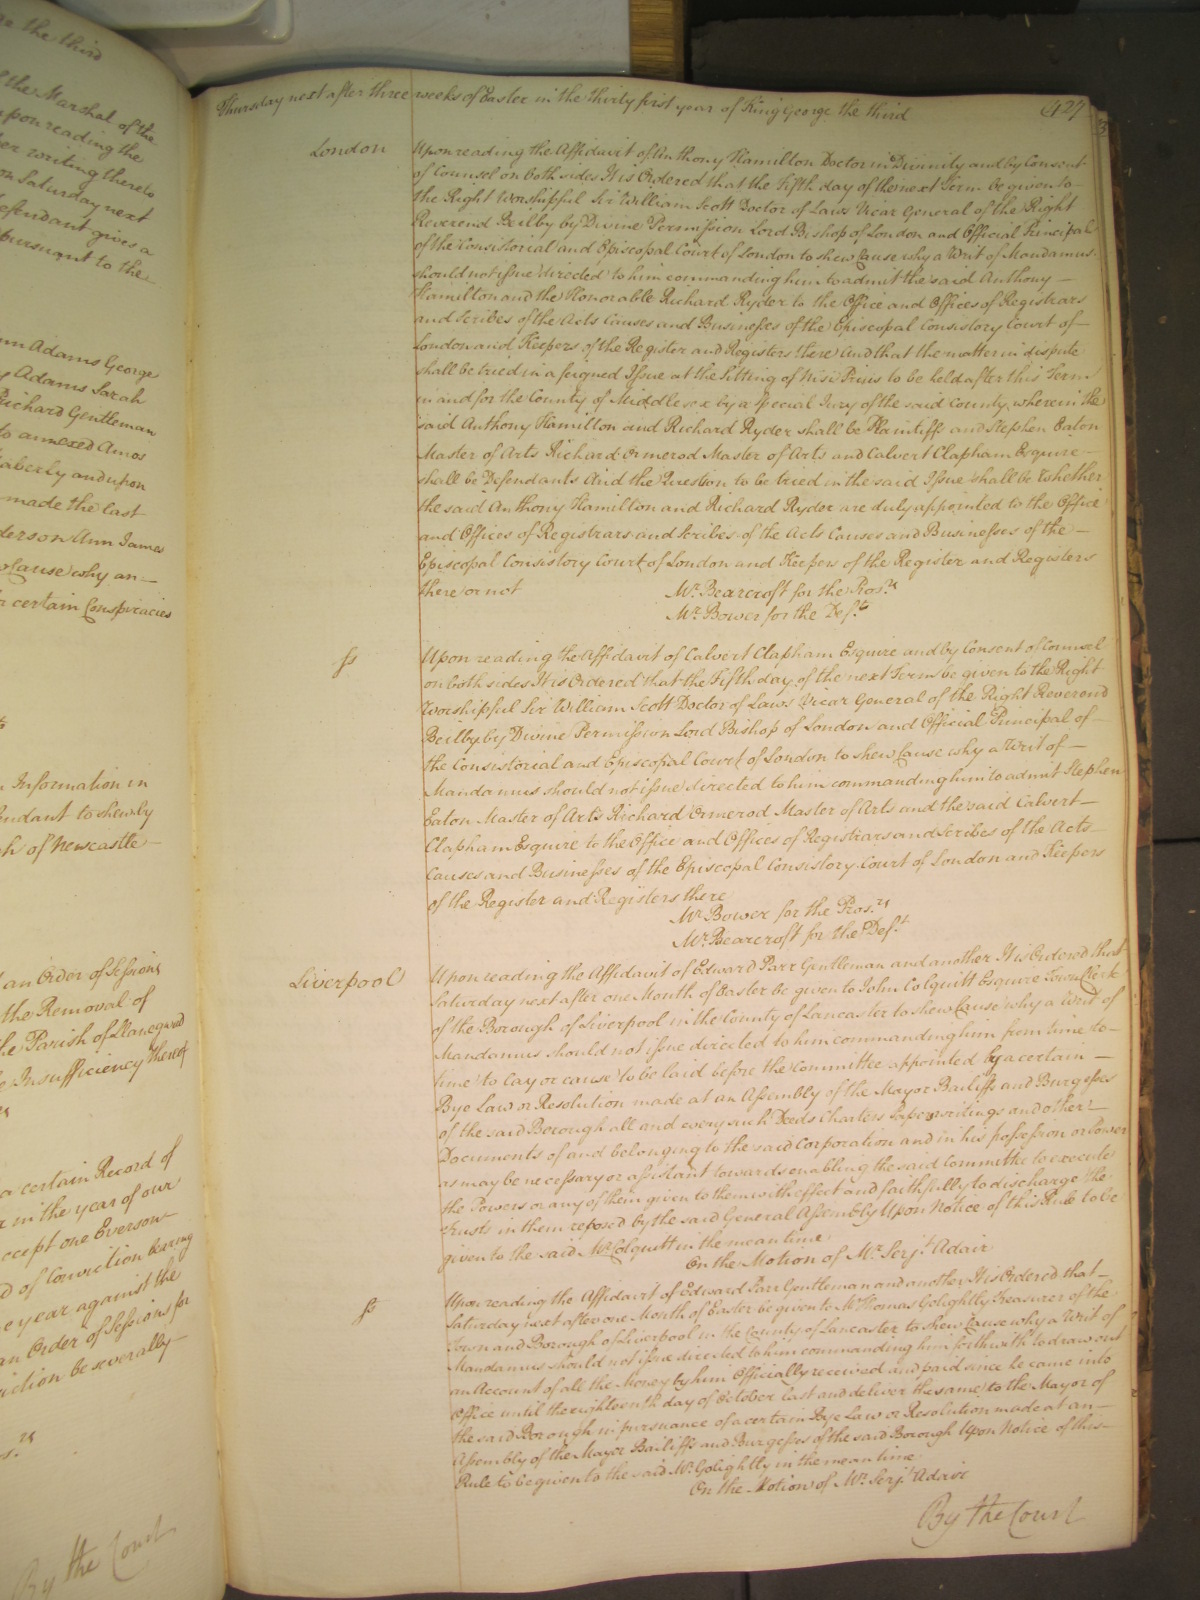 ge the third
f the Marshal of the
upon reading the
er writing thereto
on Saturday next
efendant gives a
pursuant to the
nn Adams George
y Adams Sarah
Richard Gentleman
to annexed Amos
aberly and upon
made the last
derson Ann James
Cause why an
a certain Conspiracies
Information in
endant to shew by
h of Newcastle
an Order of Sessions
the Removal of
he Parish of
e Insufficiency thereof
a certain Record of
r in the year of our
except one Everson
d of Conviction bearing
e year against the
an Order of Sessions for
iction be severally
By the Court
Thursday next after three weeks of Easter in the thirty first year of King George the third
427
London
Upon reading the Affidavit of Anthony Hamilton Doctor in Divinity and by Consent
of Counsel on both sides It is Ordered that the Fifth day of the next Term be given to
the Right Worshipful Sir William Scott Doctor of Laws Vicar General of the Right
Reverend Beilby by Divine Permission Lord Bishop of London and Official Principal
of the Consistorial and Episcopal Court of London to shew Cause why a Writ of Mandamus
should not issue directed to him commanding him to admit the said Anthony
Hamilton and the Honorable Richard Ryder to the Office and Offices of Registrars
and Scribes of the Acts Causes and Businesses of the Episcopal Consistory Court of
London and Keepers of the Register and Registers there And that the matter in dispute
shall be tried in a feigned Issue at the Sitting of Nisi Prius to be held after this Term
in and for the County of Middlesex by a Special Jury of the said County, wherein the
said Anthony Hamilton and Richard Ryder shall be Plaintiffs and Stephen Eaton
Master of Arts Richard Ormerod Master of Arts and Calvert Clapham Esquire
shall be Defendants And the Question to be tried in the said Issue shall be Whether
the said Anthony Hamilton and Richard Ryder are duly appointed to the Office
and Offices of Registrars and Scribes of the Acts Causes and Businesses of the
Episcopal Consistory Court of London and Keepers of the Register and Registers
there or not
Mr. Bearcroft for the Pros.rs
Mr. Bower for the Def.ts
ss
Upon reading the Affidavit of Calvert Clapham Esquire and by Consent of Counsel
on both sides It is Ordered that the Fifth day of the next Term be given to the Right
Worshipful Sir William Scott Doctor of Laws Vicar General of the Right Reverend
Beilby by Divine Permission Lord Bishop of London and Official Principal of
the Consistorial and Episcopal Court of London to shew Cause why a Writ of
Mandamus should not issue directed to him commanding him to admit Stephen
Eaton Master of Arts Richard Ormerod Master of Arts and the said Calvert
Clapham Esquire to the Office and Offices of Registrars and Scribes of the Acts
Causes and Businesses of the Episcopal Consistory Court of London and Keepers
of the Register and Registers there
Mr. Bower for the Pros.rs
Mr. Bearcroft for the Def.t
Liverpool
Upon reading the Affidavit of Edward Parr Gentleman and another It is Ordered that
Saturday next after one Month of Easter be given to John Colquitt Esquire Town Clerk
of the Borough of Liverpool in the County of Lancaster to shew Cause why a Writ of
Mandamus should not issue directed to him commanding him from time to
time to lay or cause to be laid before the Committee appointed by a certain
Bye Law or Resolution made at an Assembly of the Mayor Bailiffs and Burgesses
of the said Borough all and every such Deeds Charters Papers writings and other
Documents of and belonging to the said Corporation and in his possession or Power
as may be necessary or assistant towards enabling the said Committee to execute
the Powers or any of them given to them with effect and faithfully to discharge the
Trusts in them reposed by the said General Assembly Upon Notice of this Rule to be
given to the said Mr. Colquitt in the mean time
On the Motion of Mr. Serj.t Adair
ss
Upon reading the Affidavit of Edward Parr Gentleman and another It is Ordered that
Saturday next after one Month of Easter be given to Mr Thomas Golightly Treasurer of the
Town and Borough of Liverpool in the County of Lancaster to shew Cause why a Writ of
Mandamus should not issue directed to him commanding him forthwith to draw out
an Account of all the Money by him Officially received and paid since he came into
Office until the eighteenth day of October last and deliver the same to the Mayor of
the said Borough in pursuance of a certain Bye Law or Resolution made at an
Assembly of the Mayor Bailiffs and Burgesses of the said Borough Upon Notice of this
Rule to be given to the said Mr. Golightly in the mean time
On the Motion of Mr. Serj.t Adair
By the Court